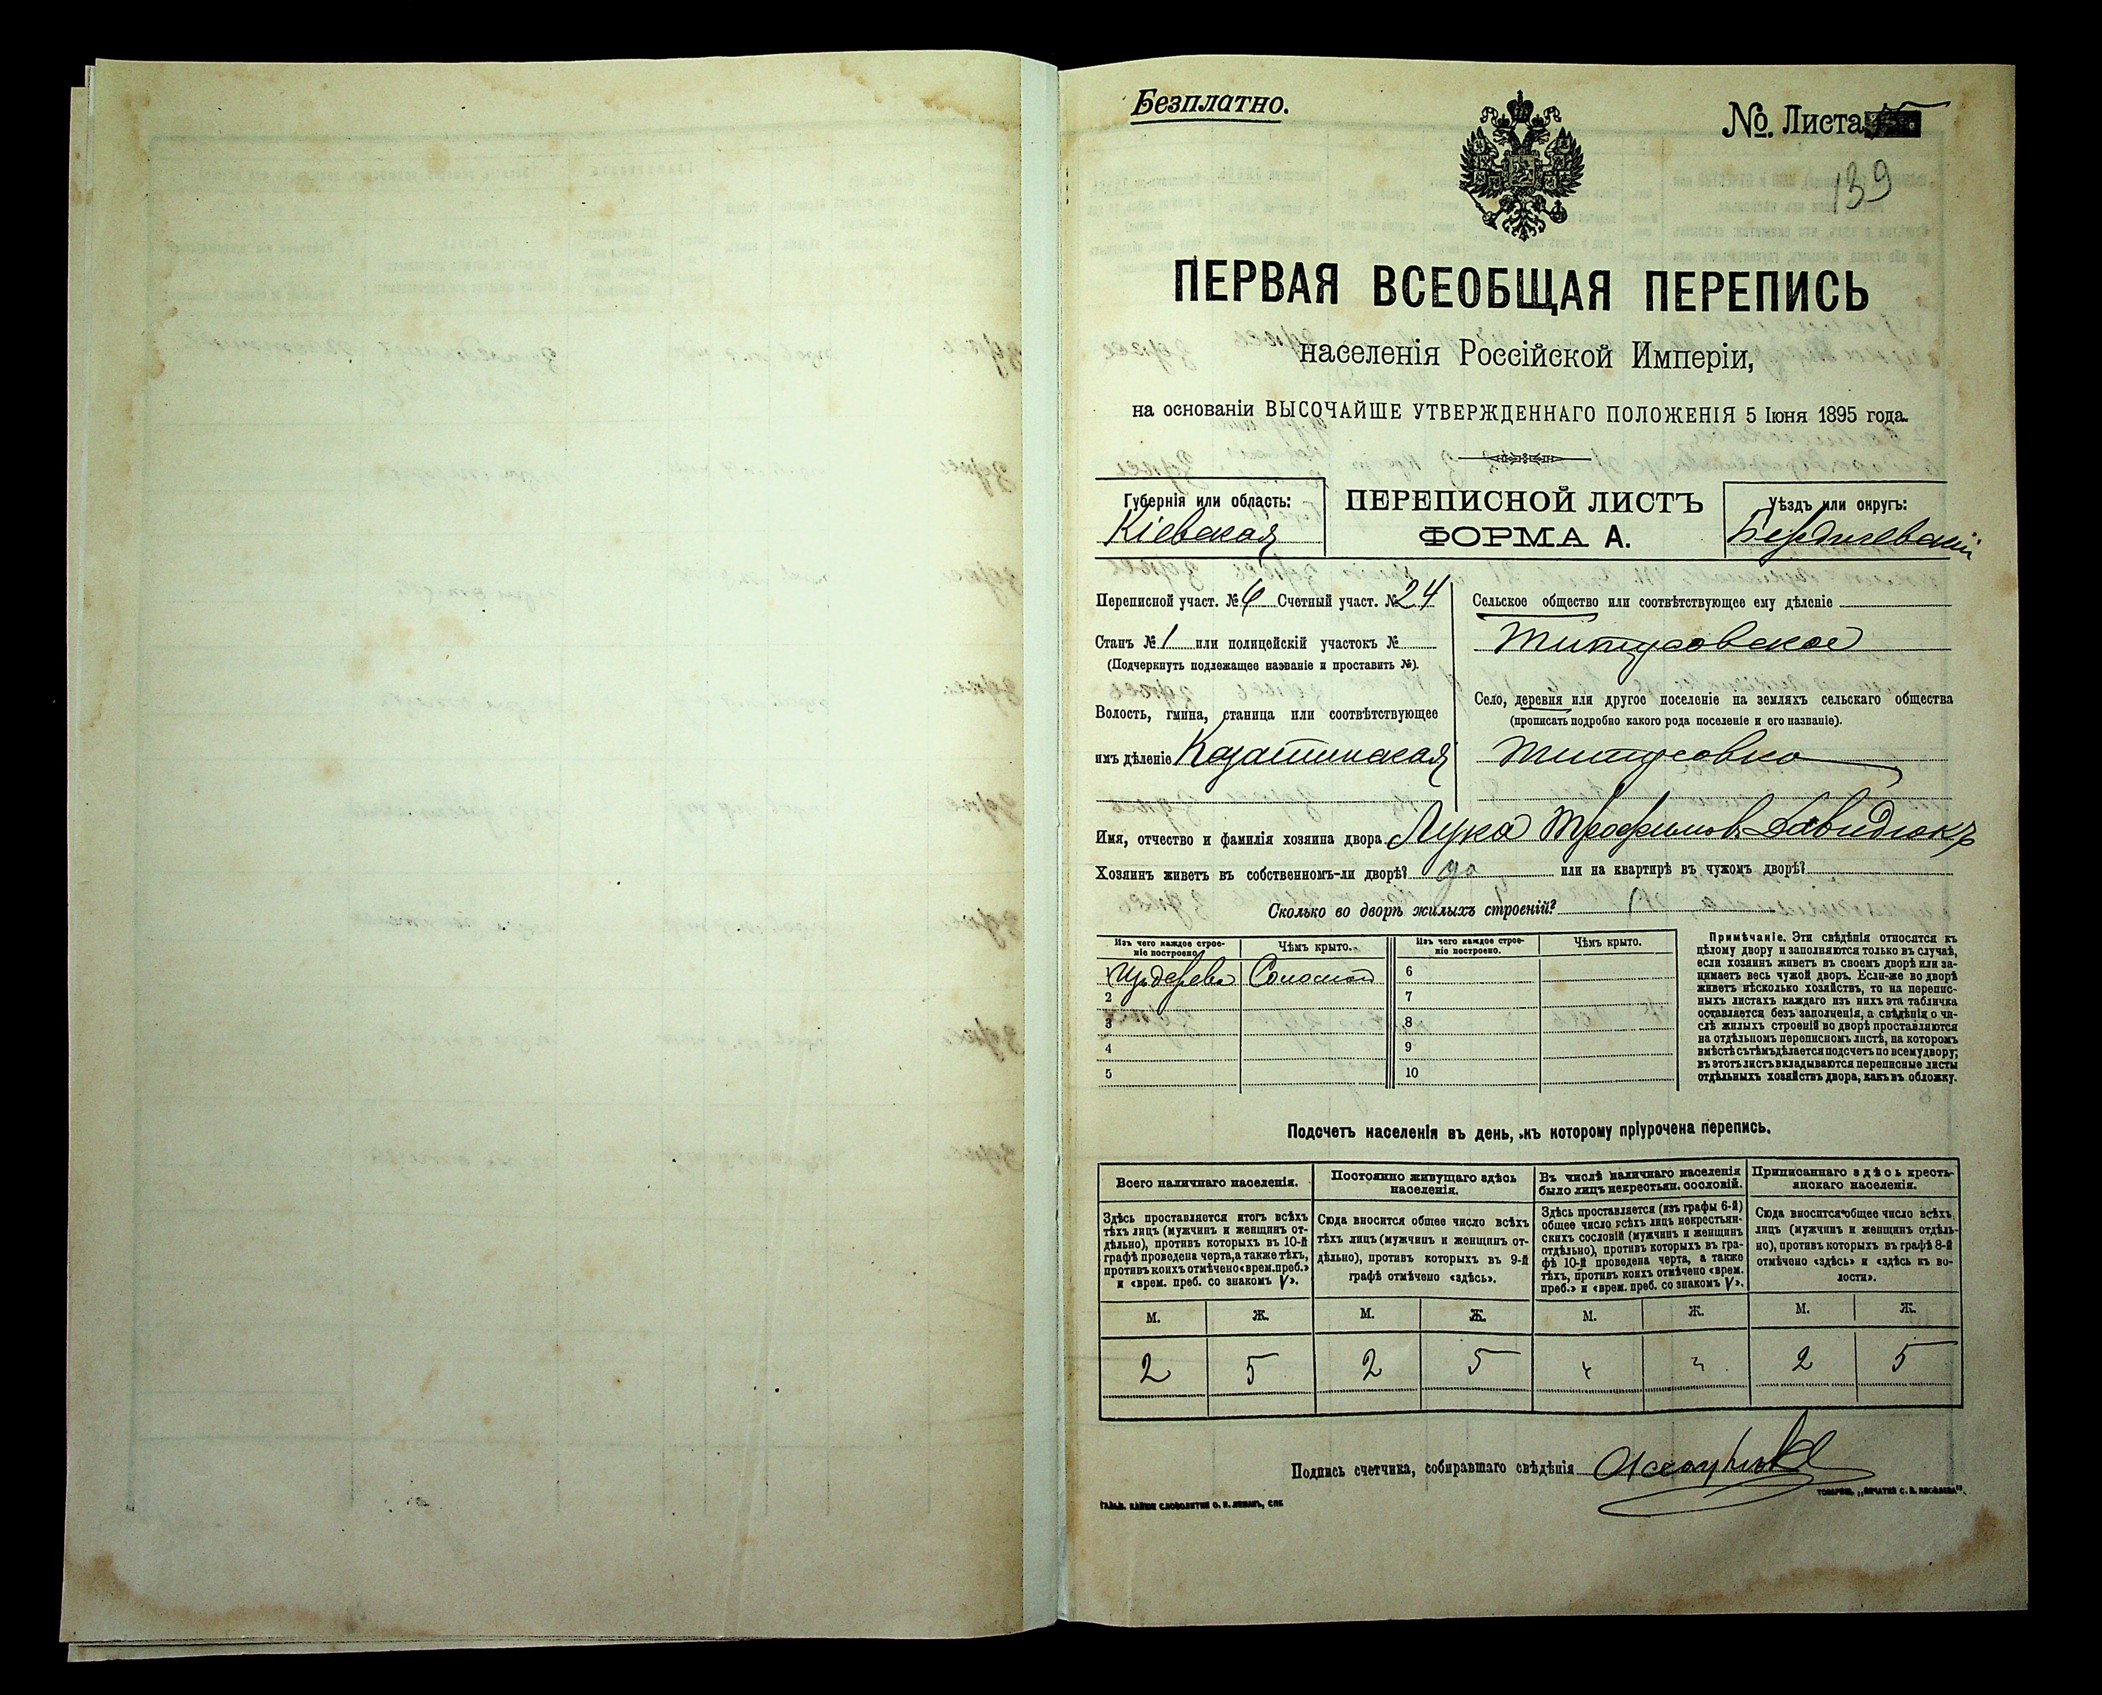 Безплатно.
№. Листа
139
ПЕРВАЯ ВСЕОБЩАЯ ПЕРЕПИСЬ
населенія Россійской Имперіи,
на основаніи ВЫСОЧАЙШЕ УТВЕРЖДЕННАГО ПОЛОЖЕНІЯ 5 Іюня 1895 года.
Губернія или область:
Кіевская
ПЕРЕПИСНОЙ ЛИСТЪ
ФОРМА А.
Уѣздъ или округъ:
Бердичевскій
Переписной участ. № 6 Счетный участ. № 24
Станъ № 1 или полицейскій участокъ №
(Подчеркнуть подлежащее названіе и проставить №).
Волость, гмина, станица или соотвѣтствующее
имъ дѣленіе Казатинская
Сельское общество или соотвѣтствующее ему дѣленіе
Титусовское
Село, деревня или другое поселеніе на земляхъ сельскаго общества
(прописать подробно какого рода поселеніе и его названіе).
Титусовка
Имя, отчество и фамилія хозяина двора Лука Трофимовъ Давидюкъ
Хозяинъ живетъ въ собственномъ-ли дворѣ? да или на квартирѣ въ чужомъ дворѣ?
Сколько во дворѣ жилыхъ строеній? 1
Изъ чего каждое строе-
ніе построено.
Чѣмъ крыто.
Изъ чего каждое строе-
ніе построено.
Чѣмъ крыто.
1 Изъ дерева Соломой 6
2 7
3 8
4 9
5 10
Примѣчаніе. Эти свѣдѣнія относятся къ
цѣлому двору и заполняются только въ случаѣ,
если хозяинъ живетъ въ своемъ дворѣ или за-
нимаетъ весь чужой дворъ. Если-же во дворѣ
живетъ нѣсколько хозяйствъ, то на перепис-
ныхъ листахъ каждаго изъ нихъ эта табличка
оставляется безъ заполненія, а свѣдѣнія о чи-
слѣ жилыхъ строеній во дворѣ проставляются
на отдѣльномъ переписномъ листѣ, на которомъ
вмѣстѣ съ тѣмъ дѣлается подсчетъ по всему двору;
въ этотъ листъ вкладываются переписные листы
отдѣльныхъ хозяйствъ двора, какъ въ обложку.
Подсчетъ населенія въ день, къ которому пріурочена перепись.
Всего наличнаго населенія.
Здѣсь проставляется итогъ всѣхъ
тѣхъ лицъ (мужчинъ и женщинъ от-
дѣльно), противъ которыхъ въ 10-й
графѣ проведена черта, а также тѣхъ,
противъ коихъ отмѣчено «врем. преб.»
и «врем. преб. со знакомъ V».
Постоянно живущаго здѣсь
населенія.
Сюда вносится общее число всѣхъ
тѣхъ лицъ (мужчинъ и женщинъ от-
дѣльно), противъ которыхъ въ 9-й
графѣ отмѣчено «здѣсь».
Въ числѣ наличнаго населенія
было лицъ некрестьян. сословій.
Здѣсь проставляется (изъ графы 6-й)
общее число всѣхъ лицъ некрестьян-
скихъ сословій (мужчинъ и женщинъ
отдѣльно), противъ которыхъ въ гра-
фѣ 10-й проведена черта, а также
тѣхъ, противъ коихъ отмѣчено «врем.
преб.» и «врем. преб. со знакомъ V».
Приписаннаго здѣсь кресть-
янскаго населенія.
Сюда вносится общее число всѣхъ
лицъ (мужчинъ и женщинъ отдѣль-
но), противъ которыхъ въ графѣ 8-й
отмѣчено «здѣсь» и «здѣсь въ во-
лости».
М. Ж. М. Ж. М. Ж. М. Ж.
2 5 2 5 " " 2 5
Подпись счетчика, собиравшаго свѣдѣнія